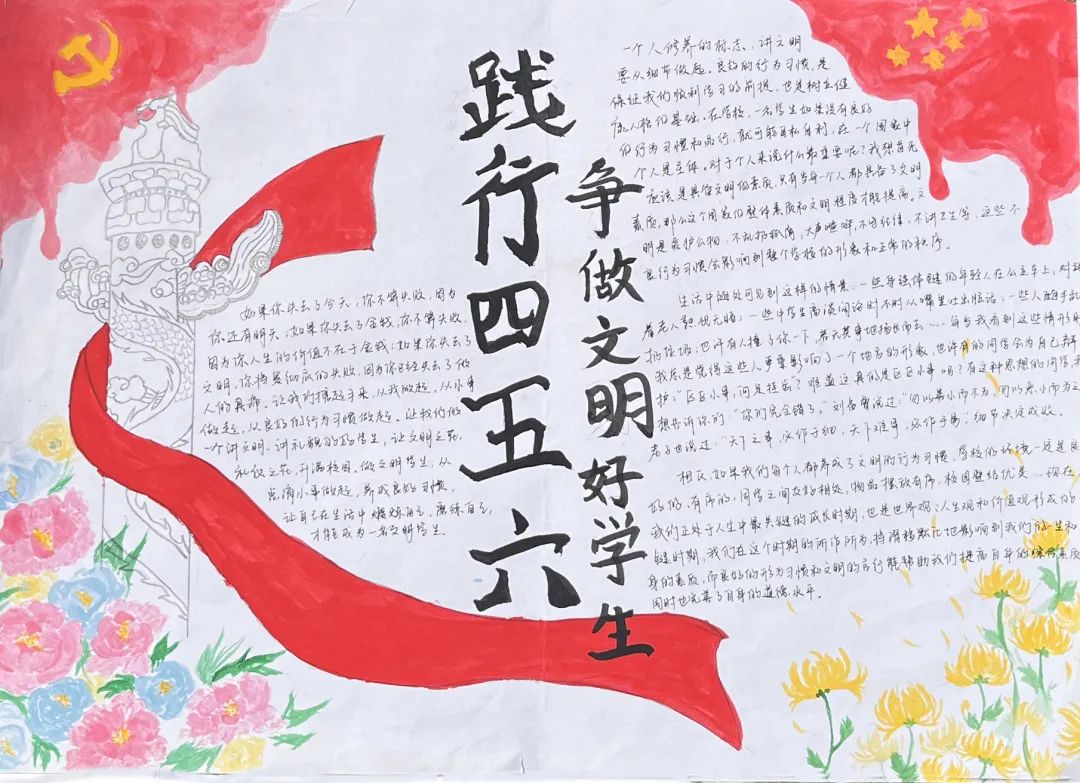 践行四五六
争做文明好学生
如果你失去了今天,你不算失败,因为
你还有明天;如果你失去了金钱,你不算失败,
因为你人生的价值不在于金钱;如果你失去了
文明,你将是彻底的失败,因为你已经失去了做
人的真谛。让我们携起手来,从我做起,从小事
做起,从良好的行为习惯做起。让我们做
一个讲文明、讲礼貌的好学生,让文明之花,
礼仪之花,开满校园,做文明学生,从
点滴小事做起,养成良好习惯,
让自己在生活中 自己,磨练自己,
才能成为一名文明学生。
一个人修养的标志,讲文明
要从细节做起。良好的行为习惯,是
保证我们顺利学习的前提,也是树立健
康人格的基础。在学校,一名学生如果没有良好
的行为习惯和品行,就可能自私自利,在一个国家中
个人是主体,对于个人来说什么最重要呢?我想首先
应该是具备文明的素质。只有当每一个人都具备了文明
素质,那么这个国家的整体素质和文明程度才能提高。文
明是爱护公物,不乱扔纸屑,大声喧哗,不守纪律,不讲卫生等,这些不
良行为习惯会影响到整个学校的形象和正常的秩序。
生活中随处可见到这样的情景:一些身强体健的年轻人在公交车上,对站
着老人熟视无睹;一些中学生高谈阔论时不时从嘴里吐出脏话;一些人随手乱
扔垃圾;也许有人撞了你一下,若无其事地扬长而去……每当我看到这些情形时
我总是觉得这些人严重影响了一个地方的形象,也许有的同学会为自己辩
护:“区区小事,何足挂齿?”难道这真的是区区小事吗?有这种思想的同学,我
想告诉你们:“你们完全错了。”刘备曾说过:“勿以善小而不为,勿以恶小而为之
老子也说过:“天下之事,必作于细,天下难事,必作于易,细节决定成败。
相反,如果我们每个人都养成了文明的行为习惯,学校的环境一定是良
好的、有序的,同学之间友好相处,物品摆放有序,校园整洁优美……现在,
我们正处于人生中最关键的成长时期,也是世界观、人生观和价值观形成的
键时期,我们在这个时期的所作所为,将潜移默化地影响到我们的一生和
身的素质,而良好的行为习惯和文明的品行能帮助我们提高自身的综合素质
同时也完善了自身的道德水平。